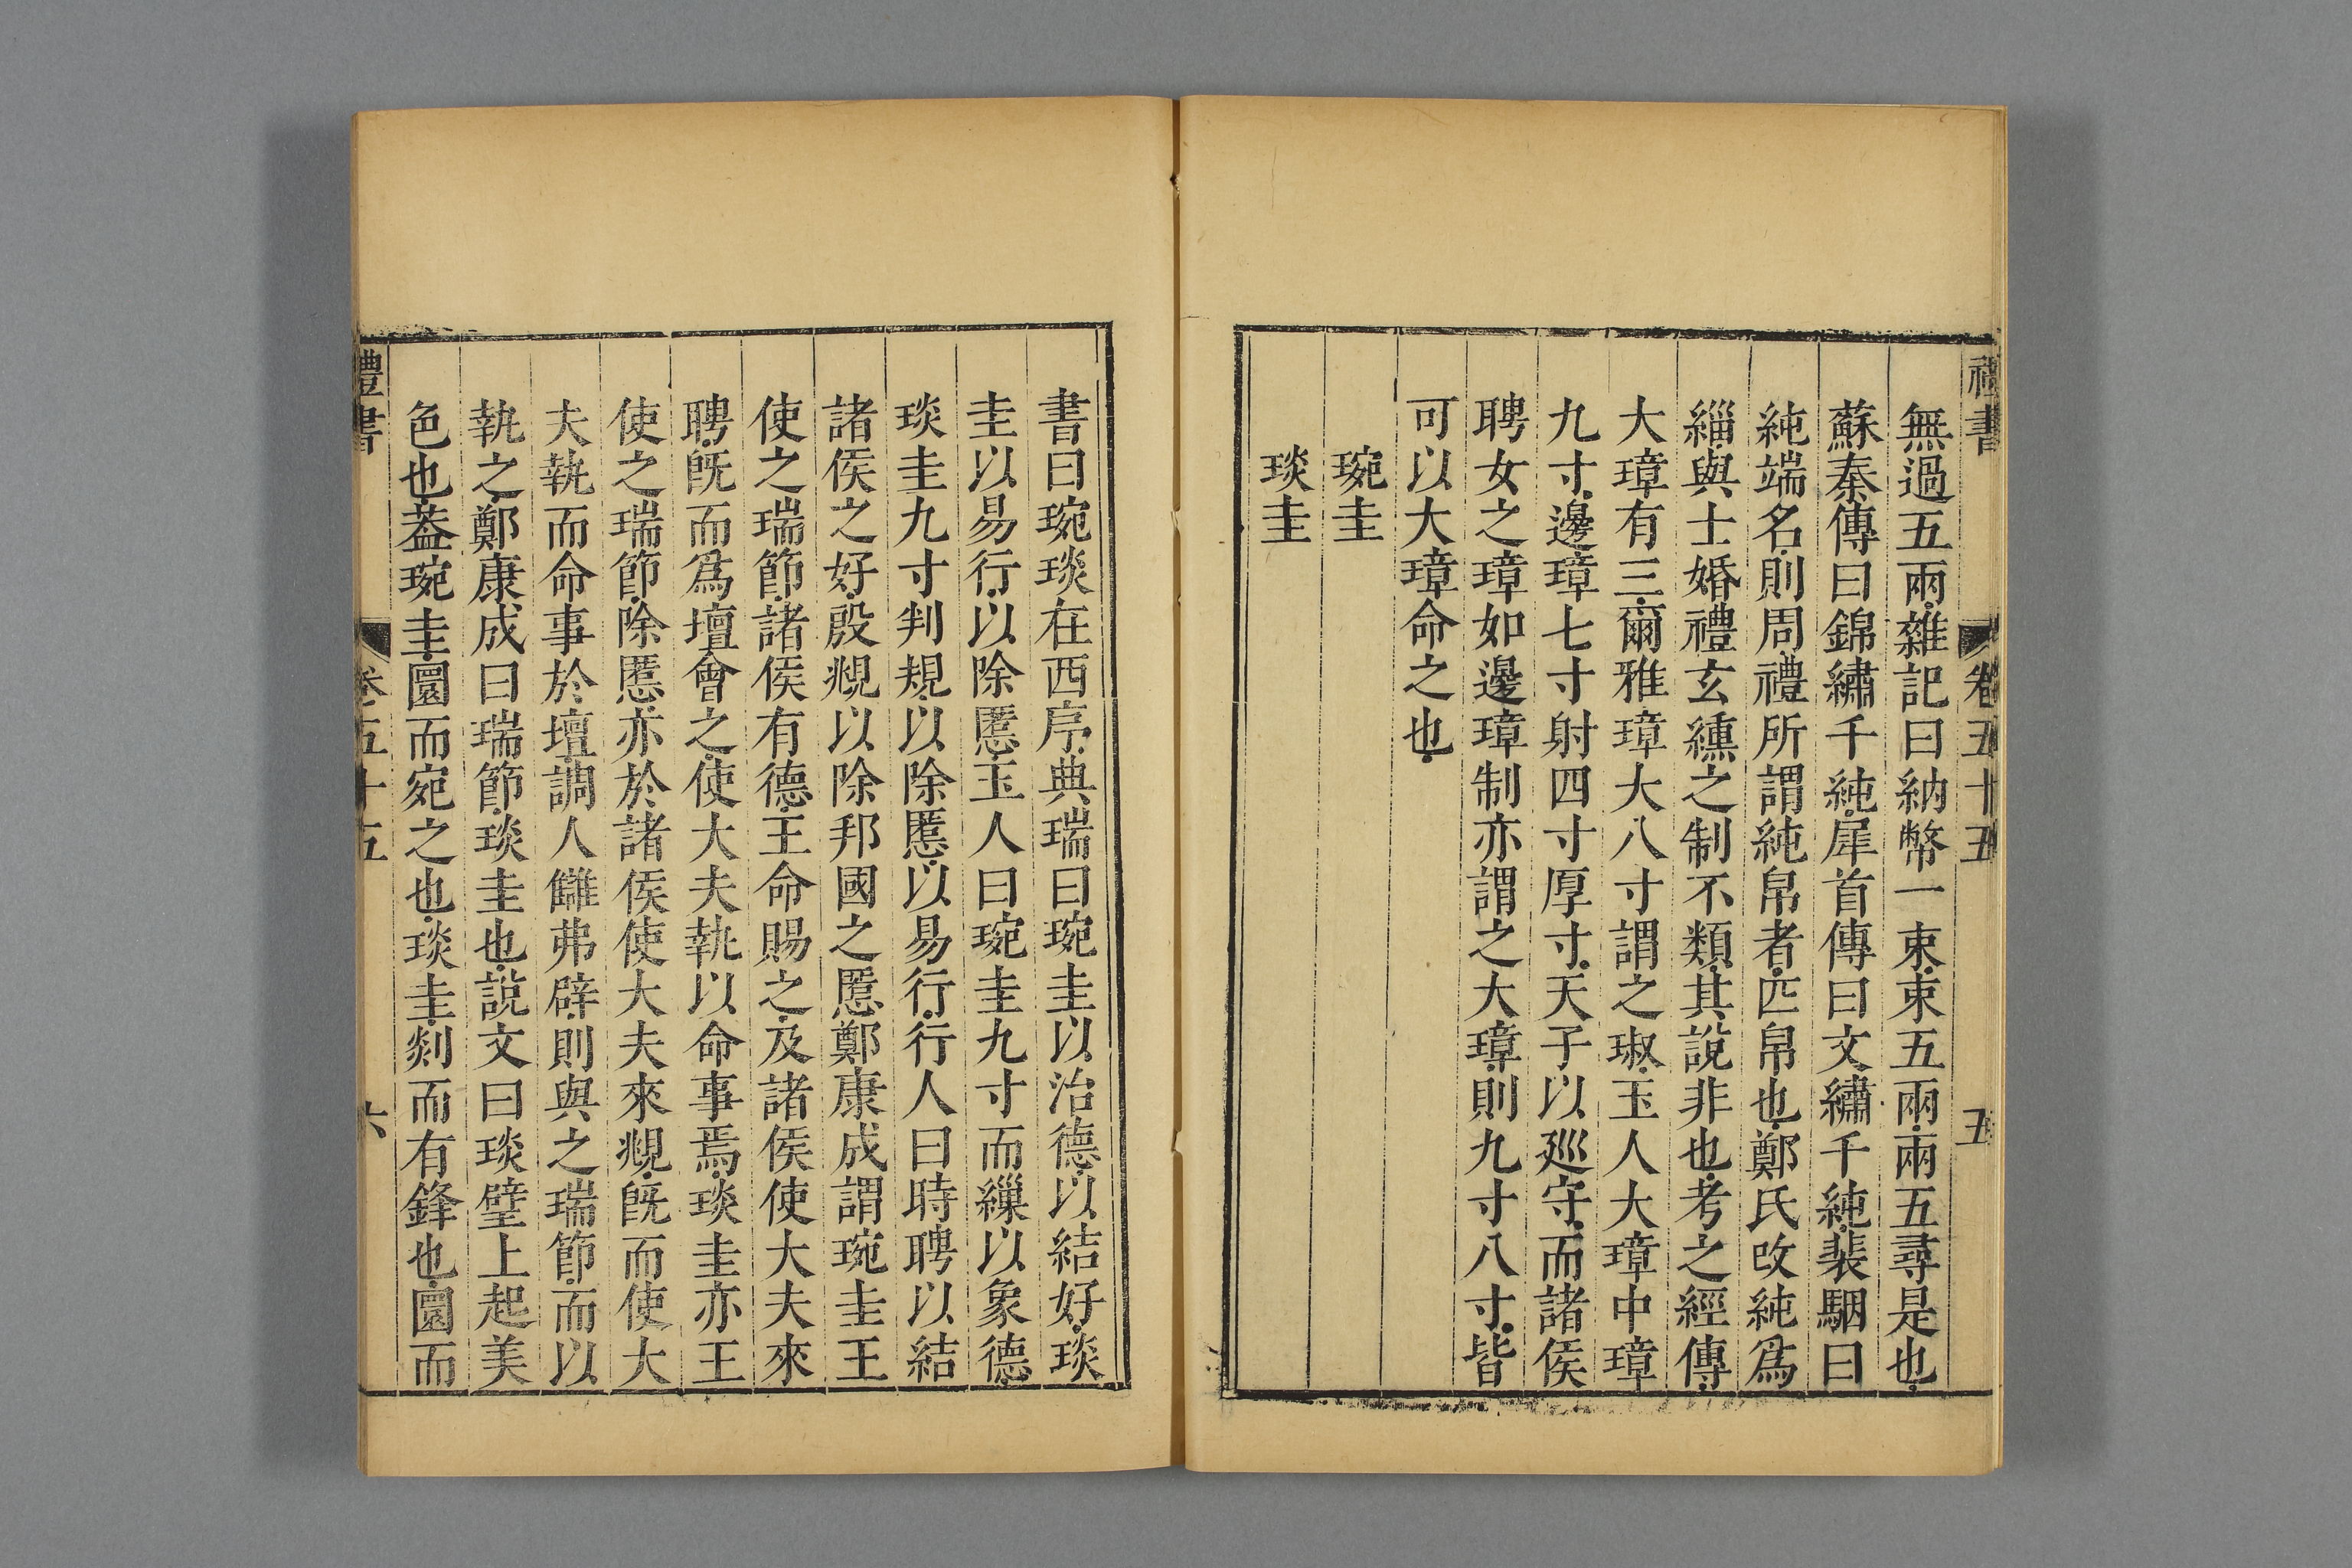 禮書 卷五十五 五
無過五兩雜記曰納幣一束束五兩兩五尋是也
蘇秦傳曰錦繡千純犀首傳曰文繡千純裴駰曰
純端名則周禮所謂純帛者匹帛也鄭氏改純爲
緇與士婚禮玄纁之制不類其說非也考之經傳
大璋有三爾雅璋大八寸謂之琡玉人大璋中璋
九寸邊璋七寸射四寸厚寸天子以廵守而諸侯
聘女之璋如邊璋制亦謂之大璋則九寸八寸皆
可以大璋命之也
琬圭
琰圭
書曰琬琰在西序典瑞曰琬圭以治德以結好琰
圭以易行以除慝玉人曰琬圭九寸而繅以象德
琰圭九寸判規以除慝以易行行人曰時聘以結
諸侯之好殷覜以除邦國之慝鄭康成謂琬圭王
使之瑞節諸侯有德王命賜之及諸侯使大夫來
聘旣而爲壇會之使大夫執以命事焉琰圭亦王
使之瑞節除慝亦於諸侯使大夫來覜旣而使大
夫執而命事於壇調人讎弗辟則與之瑞節而以
執之鄭康成曰瑞節琰圭也說文曰琰璧上起美
色也葢琬圭圜而宛之也琰圭剡而有鋒也圜而
禮書 卷五十五 六